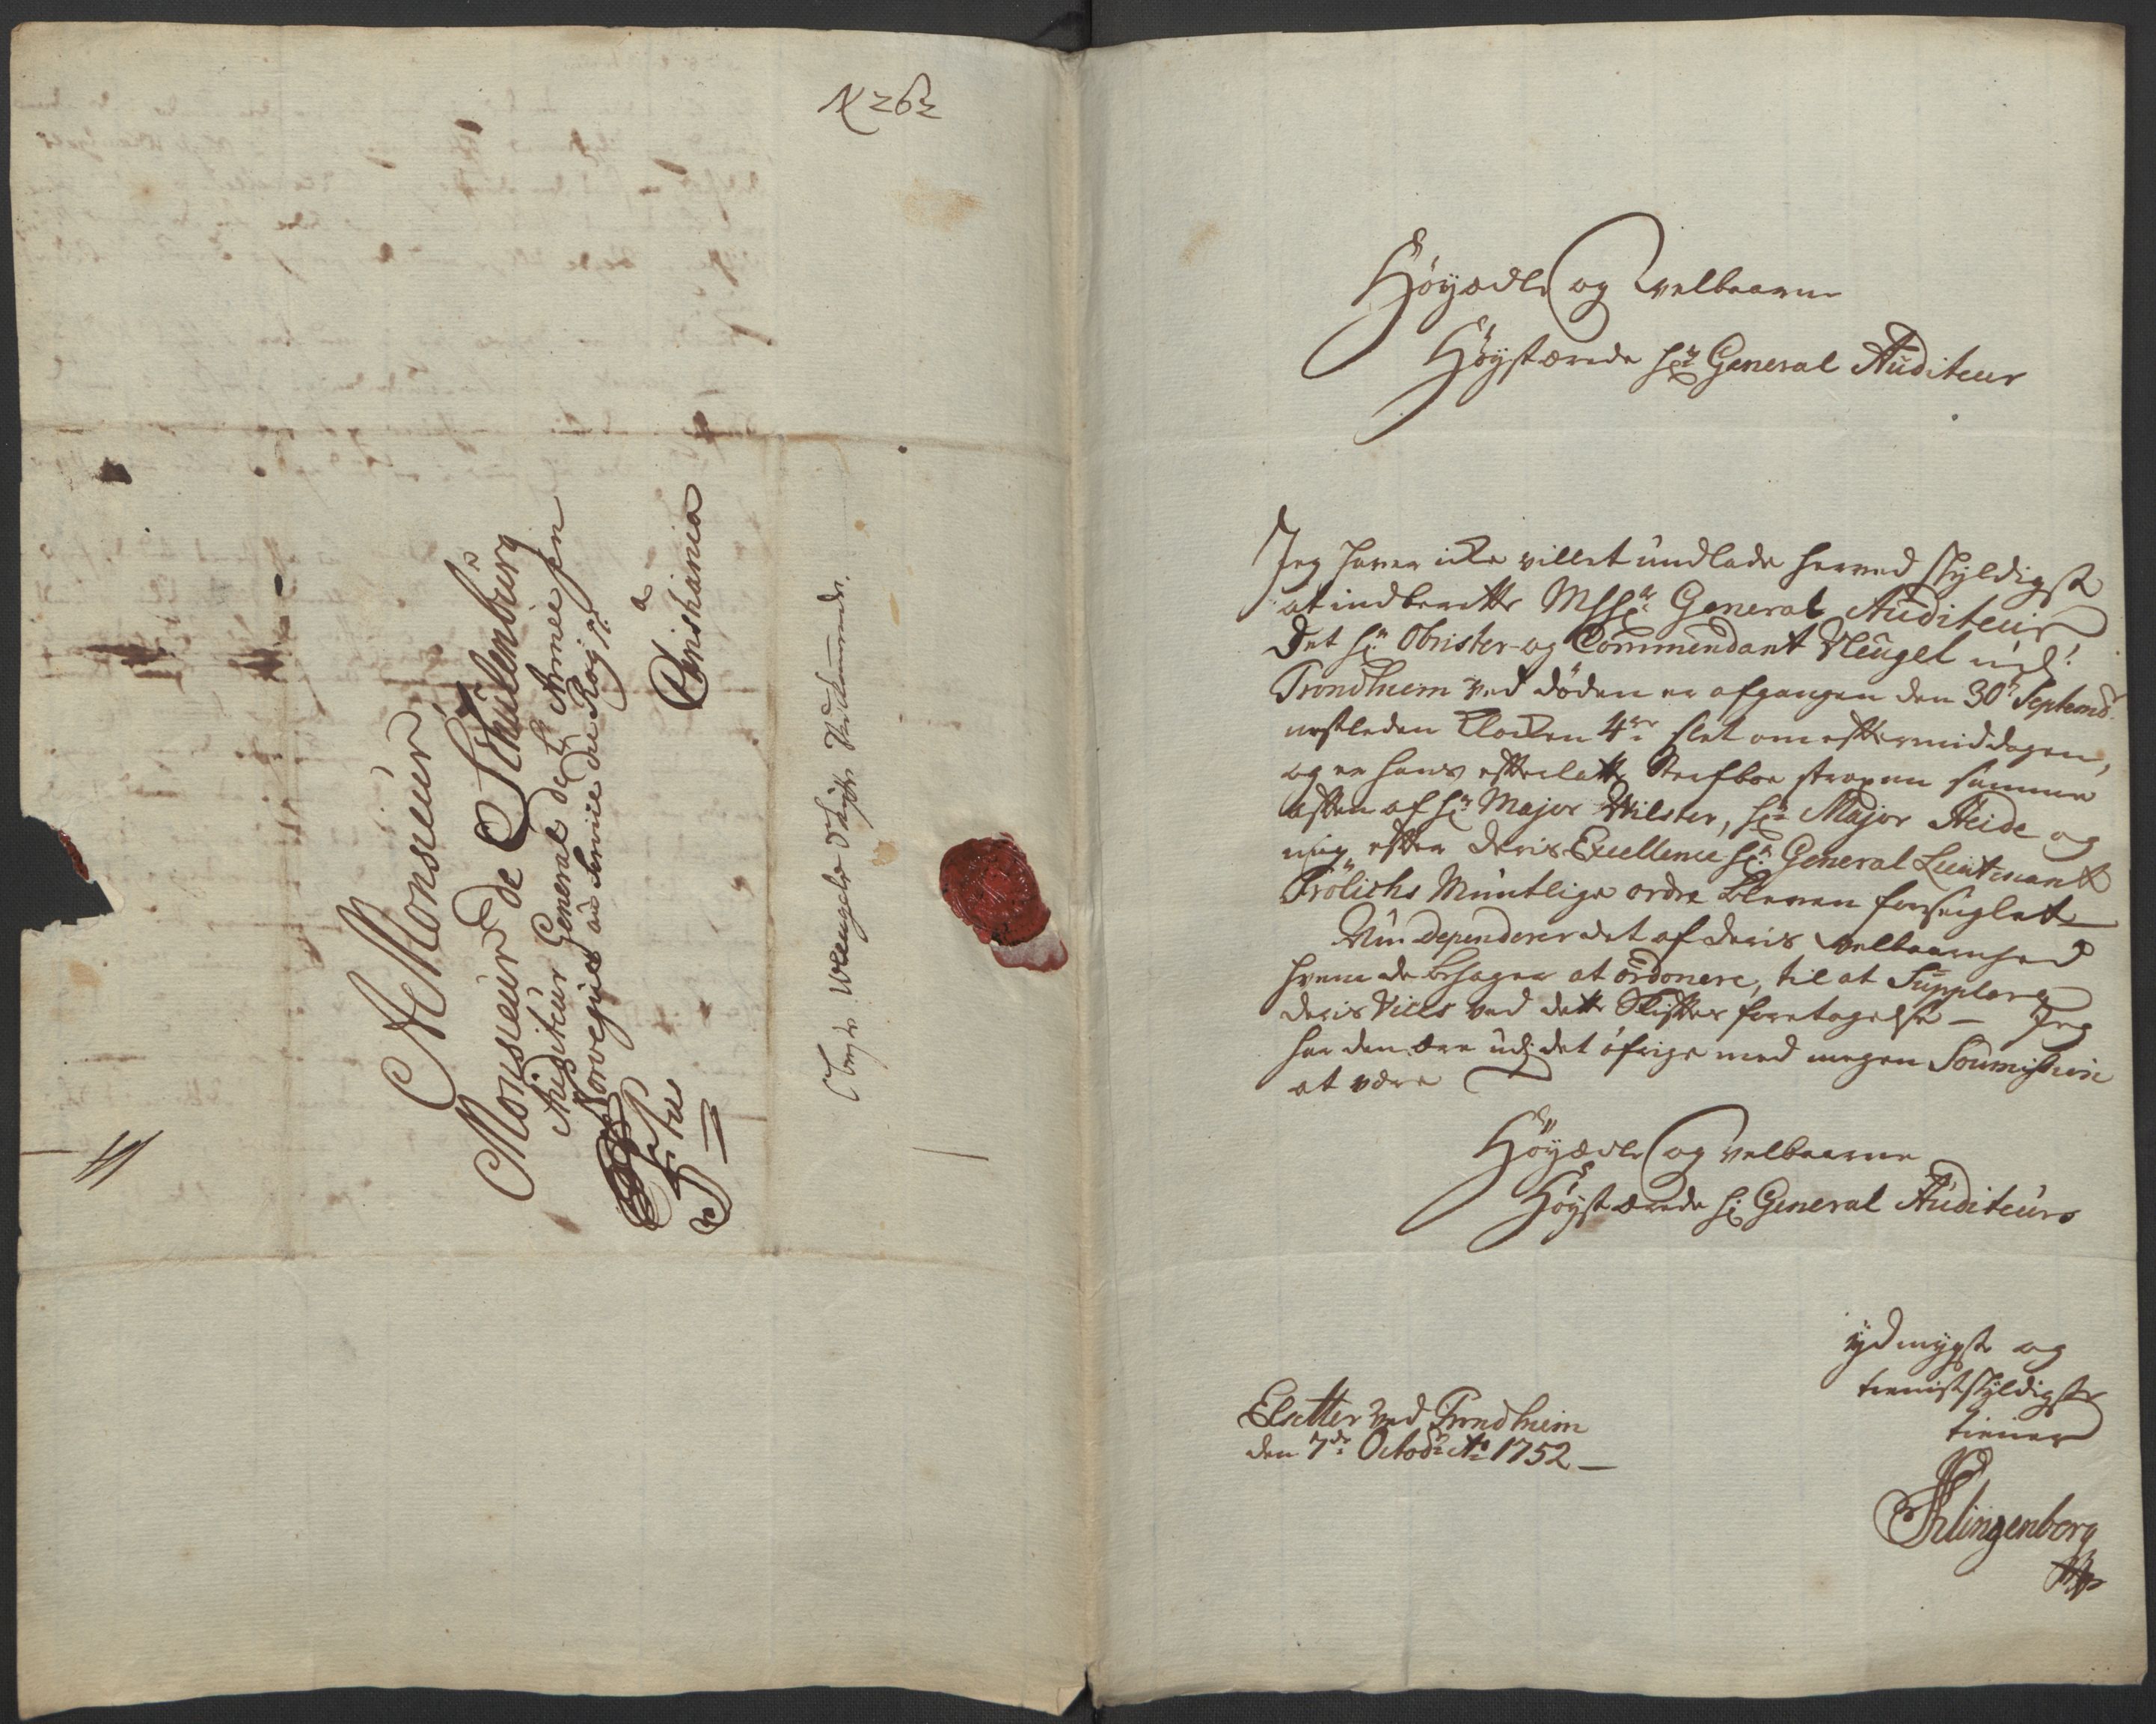 N 262
A Monsieur
Monsieur de Schulenburg
Auditeur General de L'Armée en
Norvegue au Service du Roy &
a
Christiania
Høyædle og velbaarne
Høystærede Hr: General Auditeur
Jeg haver icke villet undlade herved skyldigst
at indberette Hr: General Auditeur
Det Hr: Obrister og Commendant Vleugel ud.
Trondhiem ved døden er afgangen den 30te Septembr:
nestleden Klocken 4re slet om eftermiddagen,
og er hans efterlatte Sterfboe strax en samme
aften af Hr: Major Wilster, Hr: Major Heide og
mig efter Deris Excellence Hr: General Lieutenant
Frölichs Mundtlige ordre bleven forseiglet
Nu Dependerer det af Deris Velbaarenhed
hvem de behager at ordonere, til at Supplere
Deris Vices ved dette Skiftes foretagelse – Jeg
har den ære udj det øfrige med megen Soumission
at være
Høyædle og velbaarne
Høystærede Hr: General Auditeurs
ydmygste og
tienistskyldigste
tiener
Klingenberg
Elsetter ved Trondhiem
den 7de Octobr: Ao: 1752 –